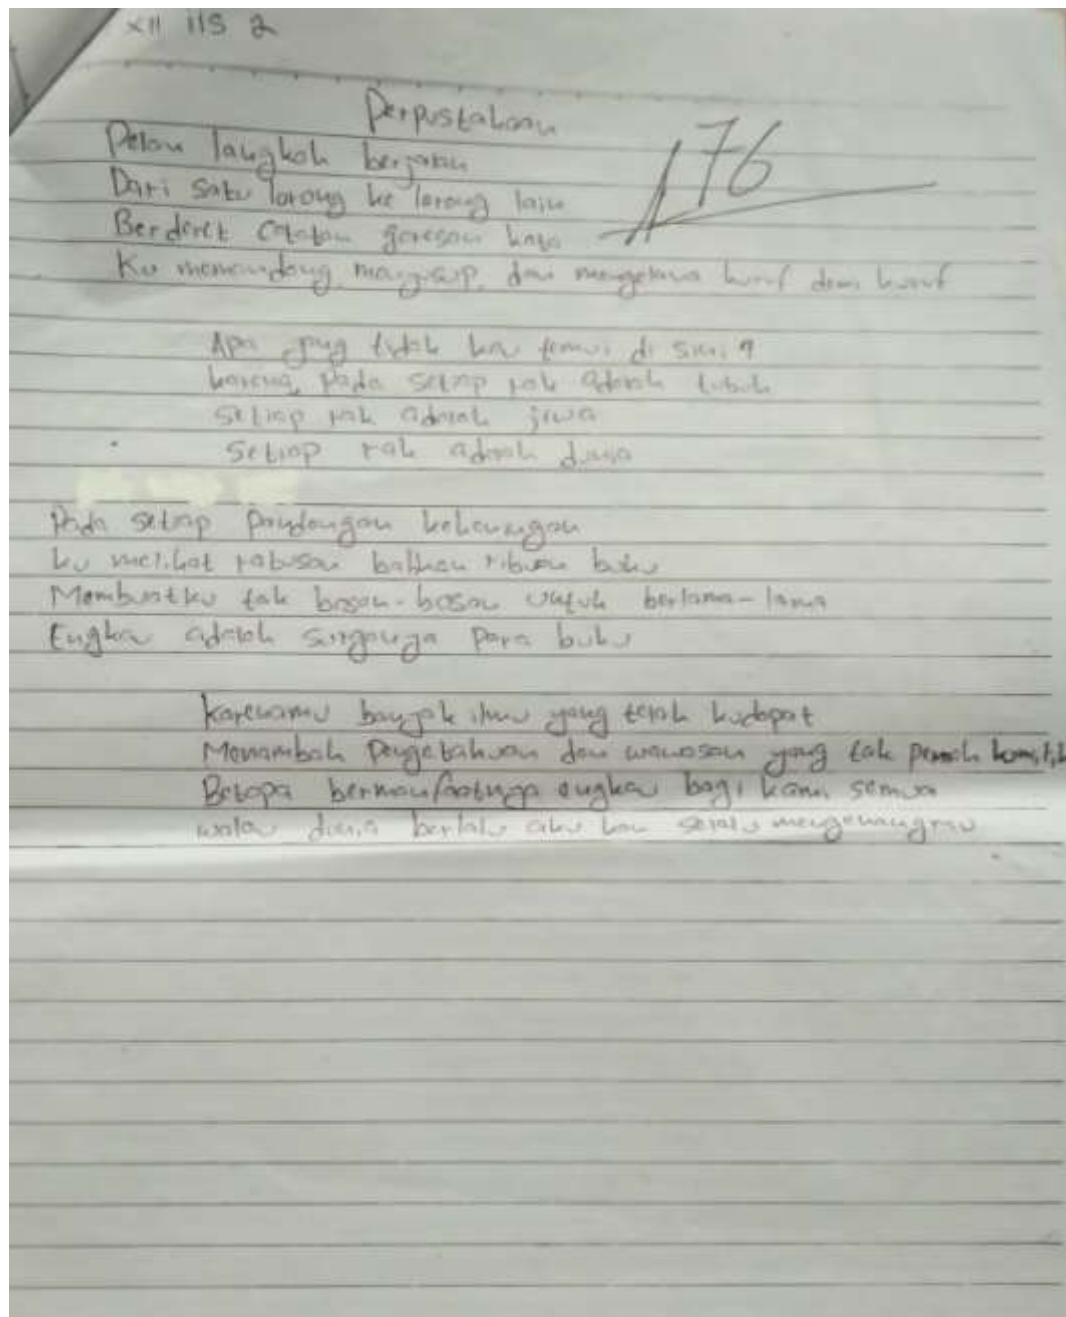 XII IIS 2
Perpustakaan
76
Pelan langkah berjalan
Dari satu lorong ke lorong lain
Berderet catatan goresan kata
Ku memandang, mengusap, dan mengeluna huruf demi huruf
Apa yang tidak kau temui di sini?
karena pada setiap rak adalah tubuh
setiap rak adalah jiwa
Setiap rak adalah dunia
Pada setiap pandangan kekenangan
ku melihat ratusan bahkan ribuan buku
Membuatku tak bosan-bosan untuk berlama-lama
Engkau adalah surganya para buku
Karenamu banyak ilmu yang telah kudapat
Menambah Pengetahuan dan wawasan yang tak pernah
Betapa bermanfaatnya engkau bagi kami semua
walau dunia berlalu aku kan selalu mengenangmu